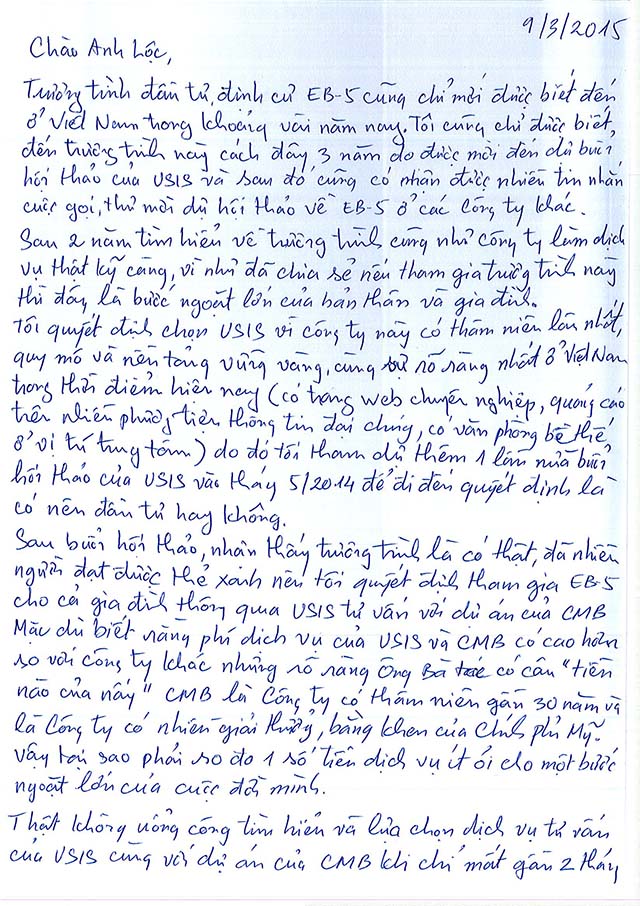 9/3/2015
Chào Anh Lộc,
Trương tình đầu tư, định cư EB-5 cũng chỉ mới được biết đến
ở Việt Nam trong khoảng vài năm nay. Tôi cũng chỉ được biết,
đến trương trình này cách đây 3 năm do được mời đến dự buổi
hội thảo của USIS và sau đó cũng có nhận được nhiều tin nhắn
cuộc gọi, thư mời dự hội thảo về EB-5 ở các Công ty khác.
Sau 2 năm tìm hiểu về trương trình cũng như Công ty làm dịch
vụ thật kỹ càng, vì như đã chia sẻ nếu tham gia trương trình này
thì đây là bước ngoặt lớn của bản thân và gia đình.
Tôi quyết định chọn USIS vì công ty này có thâm niên lâu nhất,
quy mô và nền tảng vững vàng, cùng sự rõ ràng nhất ở Việt Nam
trong thời điểm hiện nay (có trang web chuyên nghiệp, quảng cáo
trên nhiều phương tiện thông tin đại chúng, có văn phòng bề thế
ở vị trí trung tâm) do đó tôi tham dự thêm 1 lần nữa buổi
hội thảo của USIS vào tháng 5/2014 để đi đến quyết định là
có nên đầu tư hay không.
Sau buổi hội thảo, nhận thấy trương trình là có thật, đã nhiều
người đạt được thẻ xanh nên tôi quyết định tham gia EB-5
cho cả gia đình thông qua USIS tư vấn với dự án của CMB
Mặc dù biết rằng phí dịch vụ của USIS và CMB có cao hơn
so với công ty khác nhưng rõ ràng Ông Bà có câu "tiền
nào của nấy" CMB là Công ty có thâm niên gần 30 năm và
là Công ty có nhiều giải thưởng, bằng khen của Chính phủ Mỹ.
vậy tại sao phải so đo 1 số tiền dịch vụ ít ỏi cho một bước
ngoặt lớn của cuộc đời mình.
Thật không uổng công tìm hiểu và lựa chọn dịch vụ tư vấn
của USIS cùng với dự án của CMB khi chỉ mất gần 2 tháng